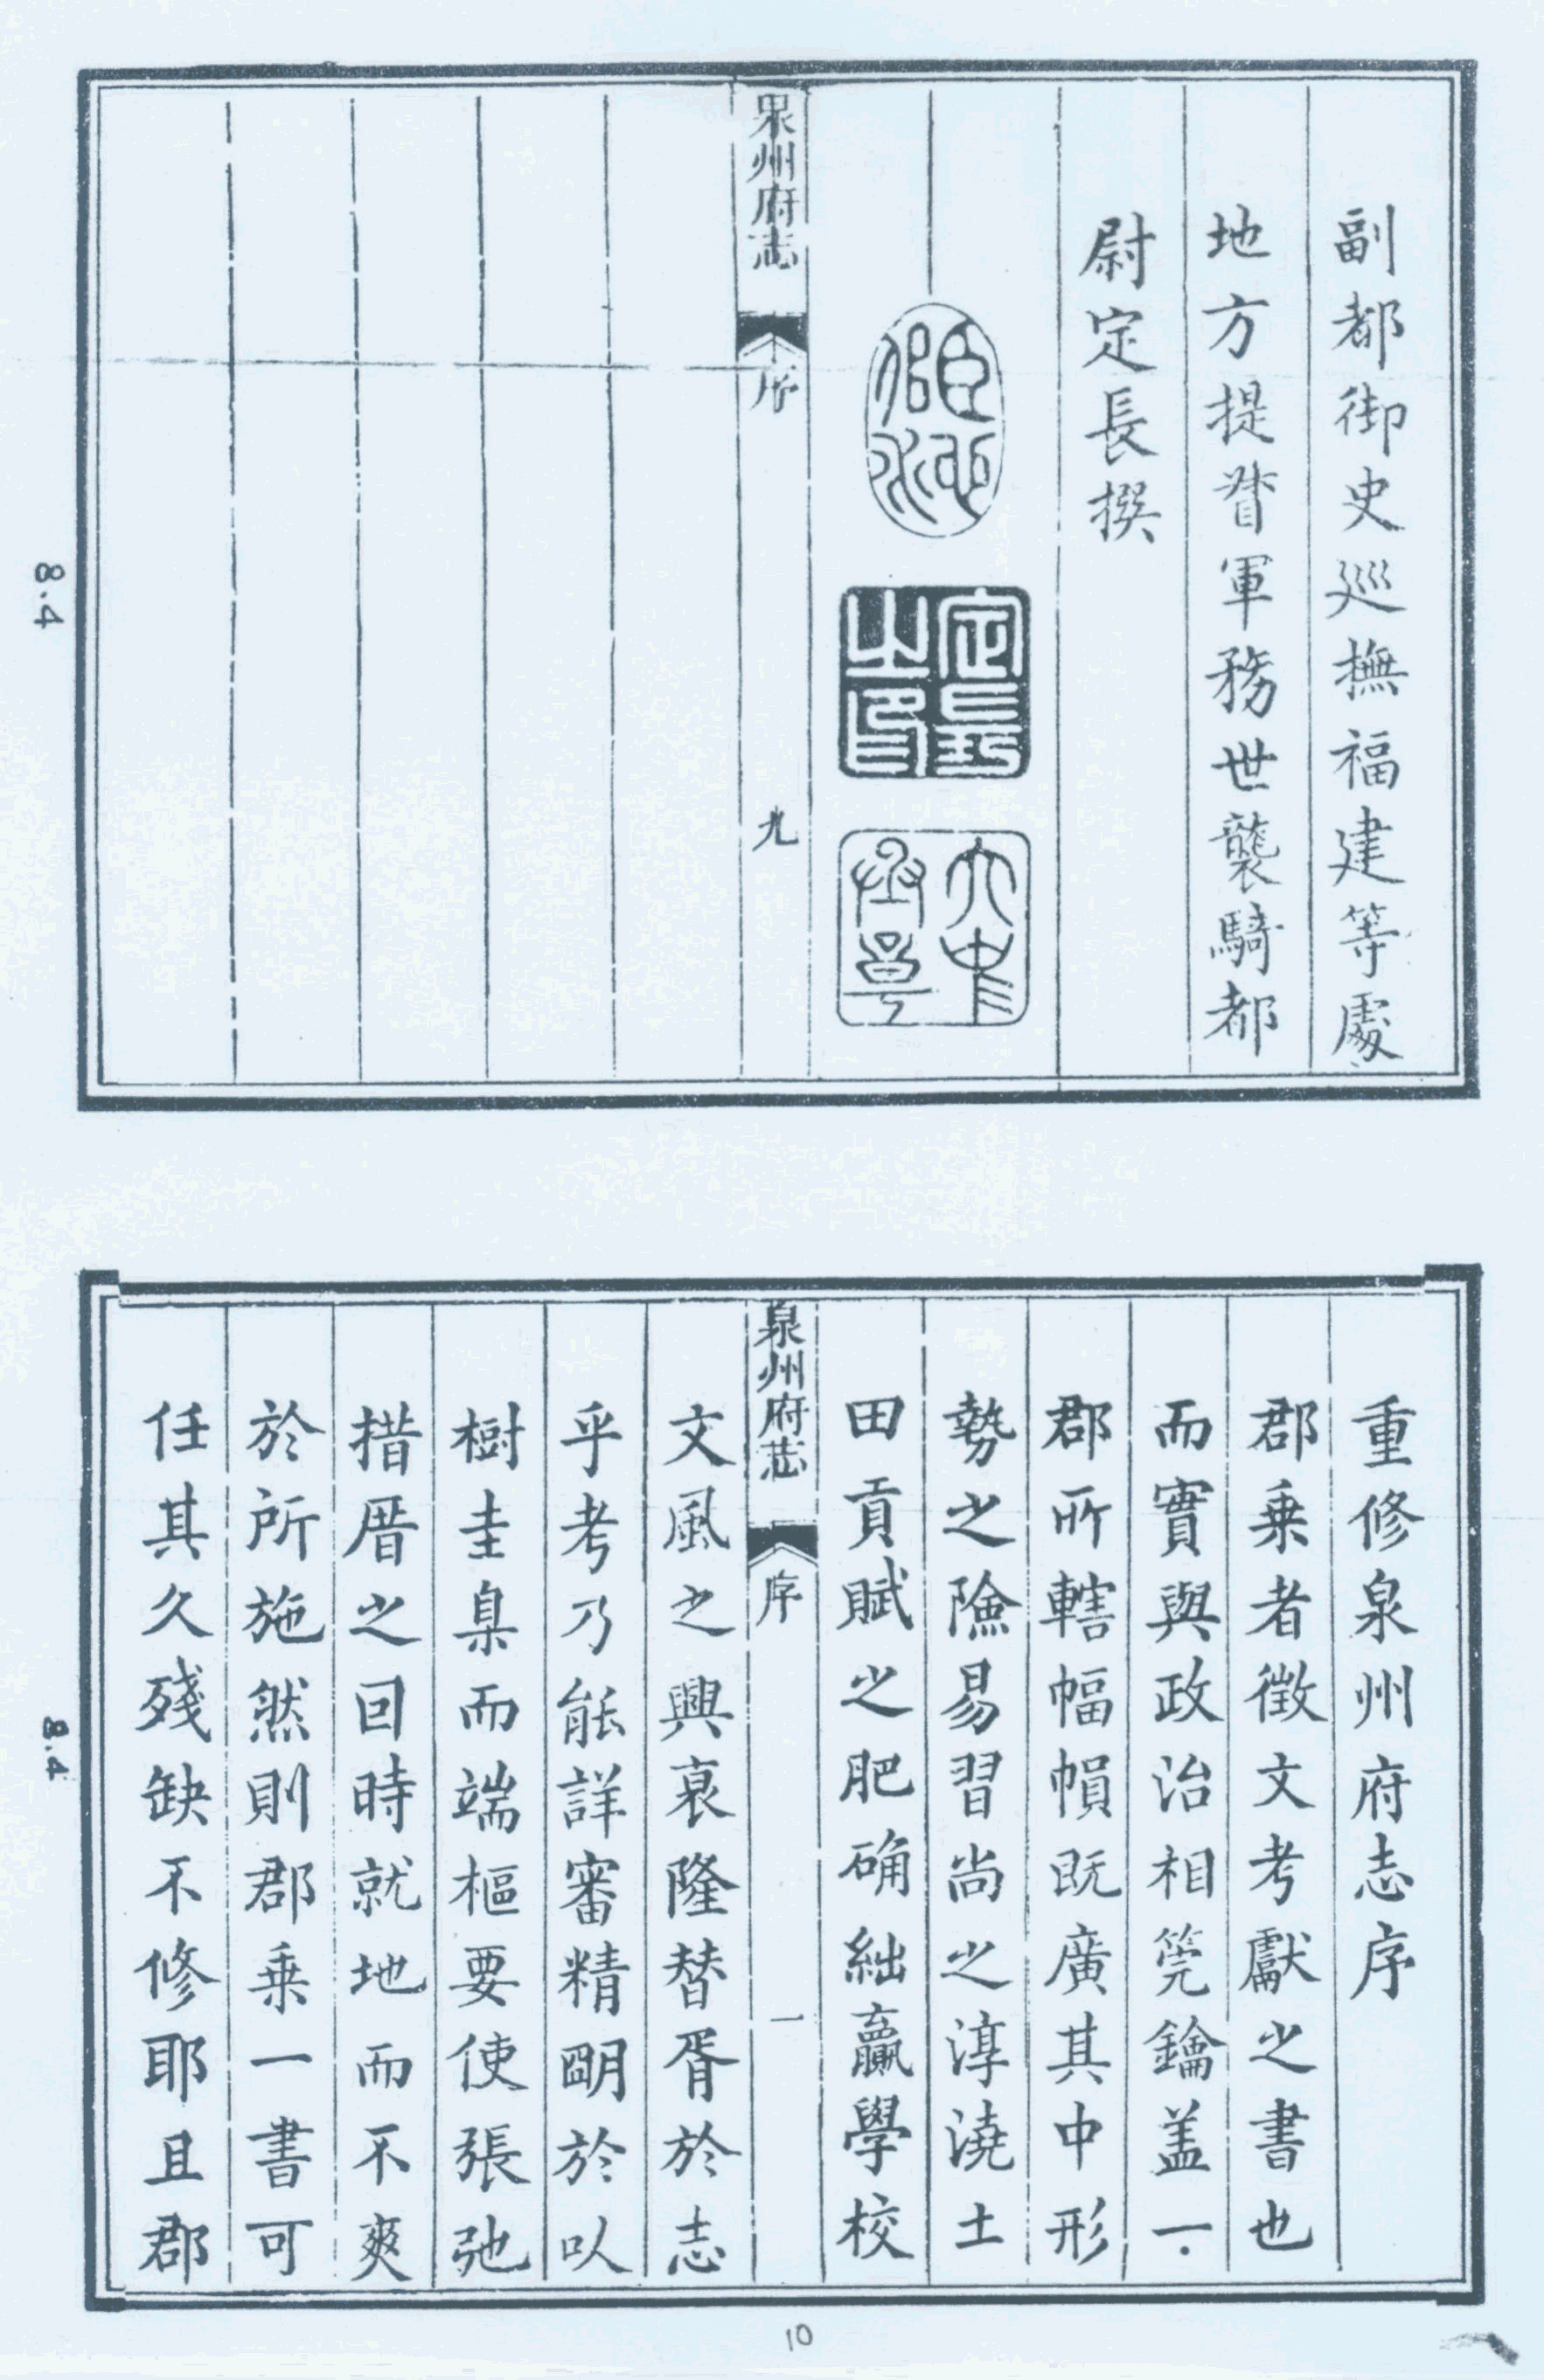 副都御史巡撫福建等處
地方提督軍務世襲騎都
尉定長撰
定長之印
泉州府志
序
九
8.4
重修泉州府志序
郡乗者徵文考獻之書也
而實與政治相筦鑰盖一
郡所轄幅幀既廣其中形
勢之險易習尚之淳澆土
田貢賦之肥确絀贏學校
泉州府志
序
一
文風之興衰隆替胥於志
乎考乃能詳審精明於以
樹圭臬而端樞要使張弛
措厝之回時就地而不爽
於所施然則郡乗一書可
任其久殘缺不修耶且郡
8.4
10